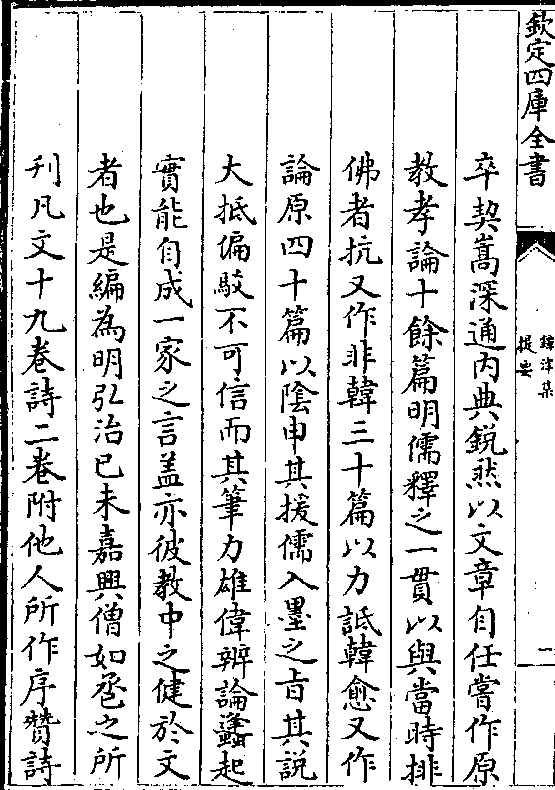 欽定四庫全書
鐔津集
提要
二
卒契嵩深通内典銳然以文章自任嘗作原
教孝論十餘篇明儒釋之一貫以與當時排
佛者抗又作非韓三十篇以力詆韓愈又作
論原四十篇以陰申其援儒入墨之旨其説
大抵偏駮不可信而其筆力雄偉辨論蠭起
實能自成一家之言盖亦彼教中之健於文
者也是編為明弘治己未嘉興僧如巹之所
刋凡文十九卷詩二卷附他人所作序贊詩